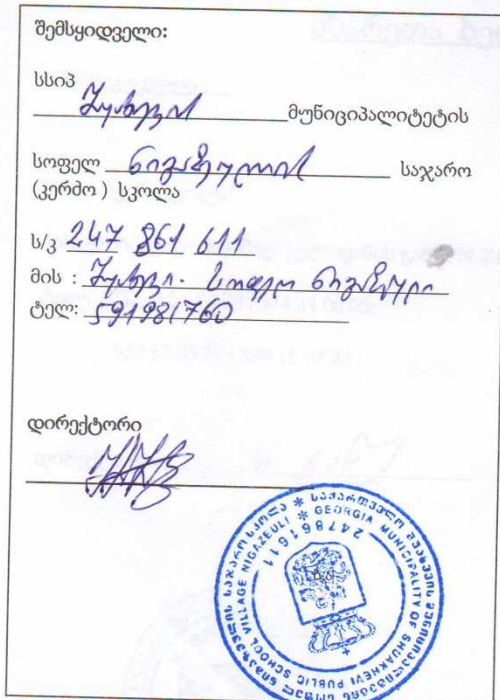 შემსყიდველი:
სსიპ
შუახევის მუნიციპალიტეტის
სოფელ ნიგაზეულის საჯარო
(კერძო ) სკოლა
ს/კ 247 861 611
მის : შუახევი. სოფელი ნიგაზეული
ტელ: 591981760
დირექტორი
საქართველო შუახევის მუნიციპალიტეტის სოფელ ნიგაზეულის საჯარო სკოლა
GEORGIA MUNICIPALITY OF SHUAKHEVI PUBLIC SCHOOL VILLAGE NIGAZEULI
247861611